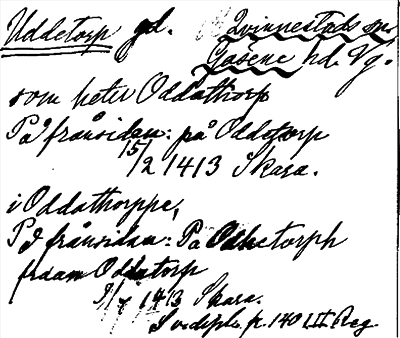 Uddetorp gd. Qvinnestads sn
Gäsene hd. Vg.
som heter Oddathorp
På frånsidan: på Oddetorp
15/2 1413 Skara.
i Oddathorppe,
På frånsidan: Pa Oddetorph
Oddetorp
9/7 1413 Skara.
Svedipl. p. 140 I II Reg